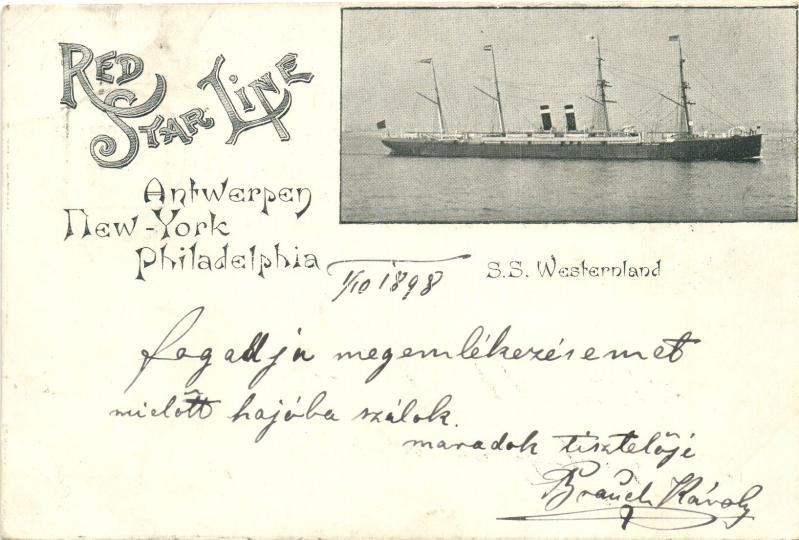 RED
STAR LINE
Antwerpen
New-York
Philadelphia
1/10 1898
S.S. Westernland
fogadja megemlékezésemet
mielőtt hajóba szálok.
maradok tisztelője
Károly